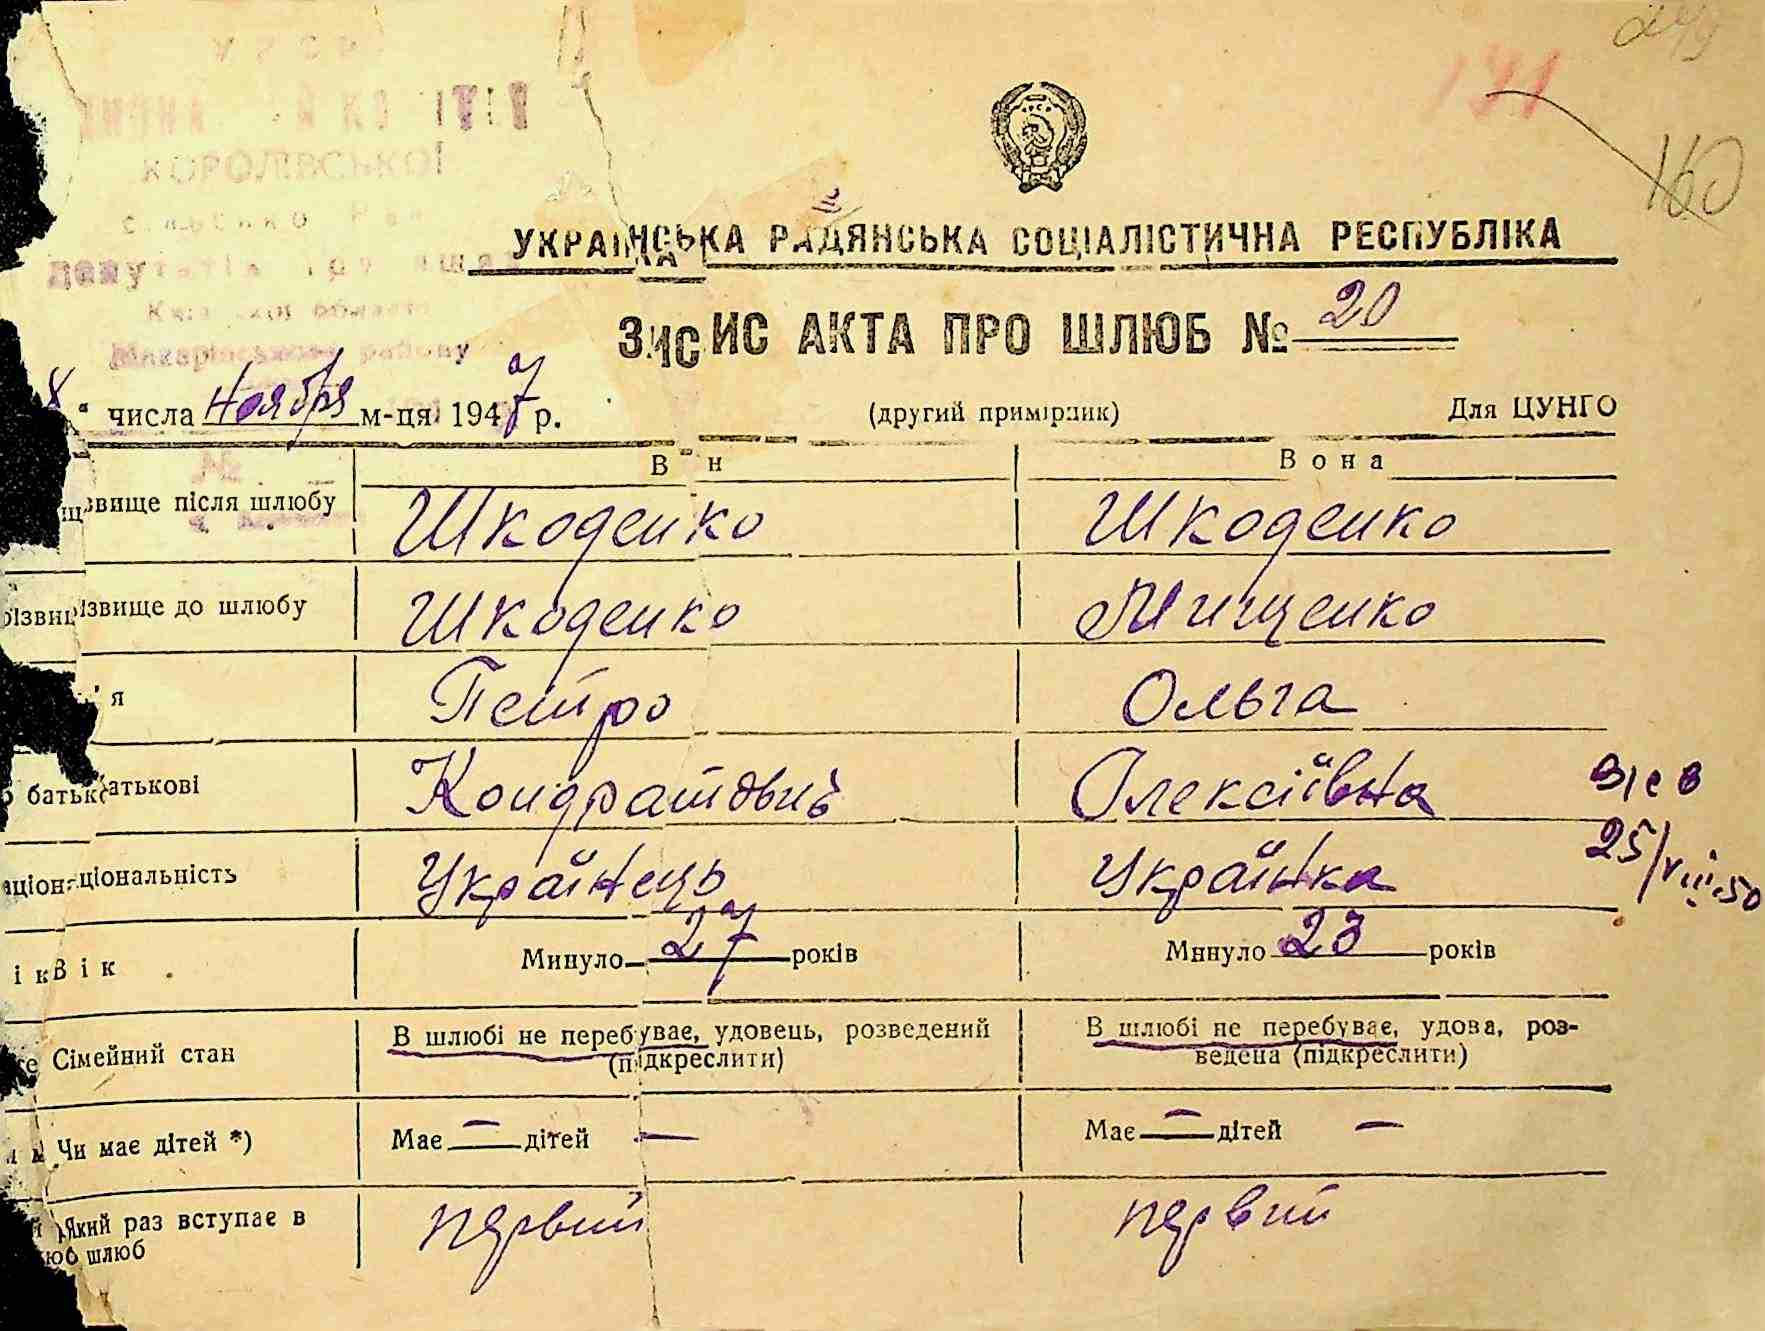 249
191
160
УРСР
КОРОЛІВСЬКОЇ
депутатів трудящих
Київської області
Макарівського району
УКРАЇНСЬКА РАДЯНСЬКА СОЦІАЛІСТИЧНА РЕСПУБЛІКА
ЗАПИС АКТА ПРО ШЛЮБ № 20
числа Ноября м-ця 1947 р. (другий примірник) Для ЦУНГО
Він Вона
Прізвище після шлюбу Шкоденко Шкоденко
Прізвище до шлюбу Шкоденко Мищенко
Ім'я Петро Ольга
По батькові Кондратович Олексіївна
Національність Українець Українка
25/VIII-50
Вік Минуло 27 років Минуло 23 років
Сімейний стан В шлюбі не перебуває, удовець, розведений (підкреслити) В шлюбі не перебуває, удова, роз-
ведена (підкреслити)
Чи має дітей *) Має — дітей — Має — дітей —
Який раз вступає в первий первий
шлюб